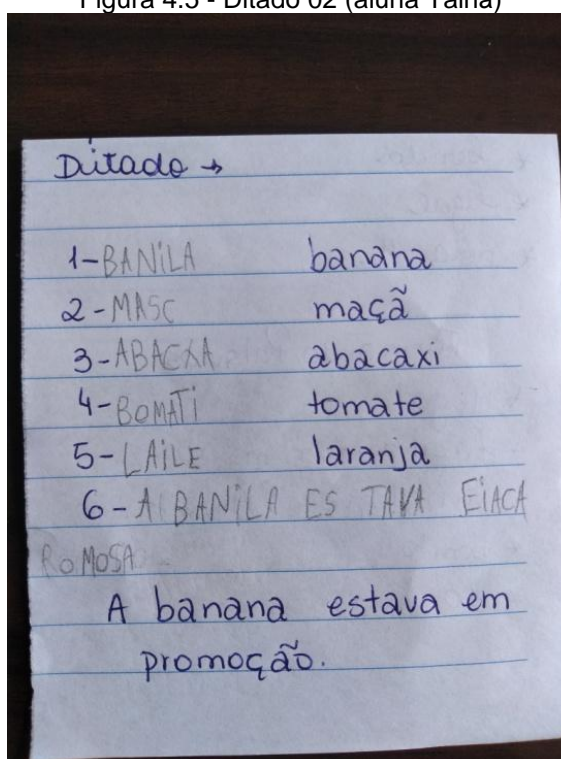 Figura 4.5 - Ditado 02 (aluna Taína)
Ditado →
1- BANILA banana
2 - MASC maçã
3 - ABACXA abacaxi
4 - BOMATI tomate
5 - LAILE laranja
6 - A BANILA ES TAVA EIACA
ROMOSA
A banana estava em
promoção.